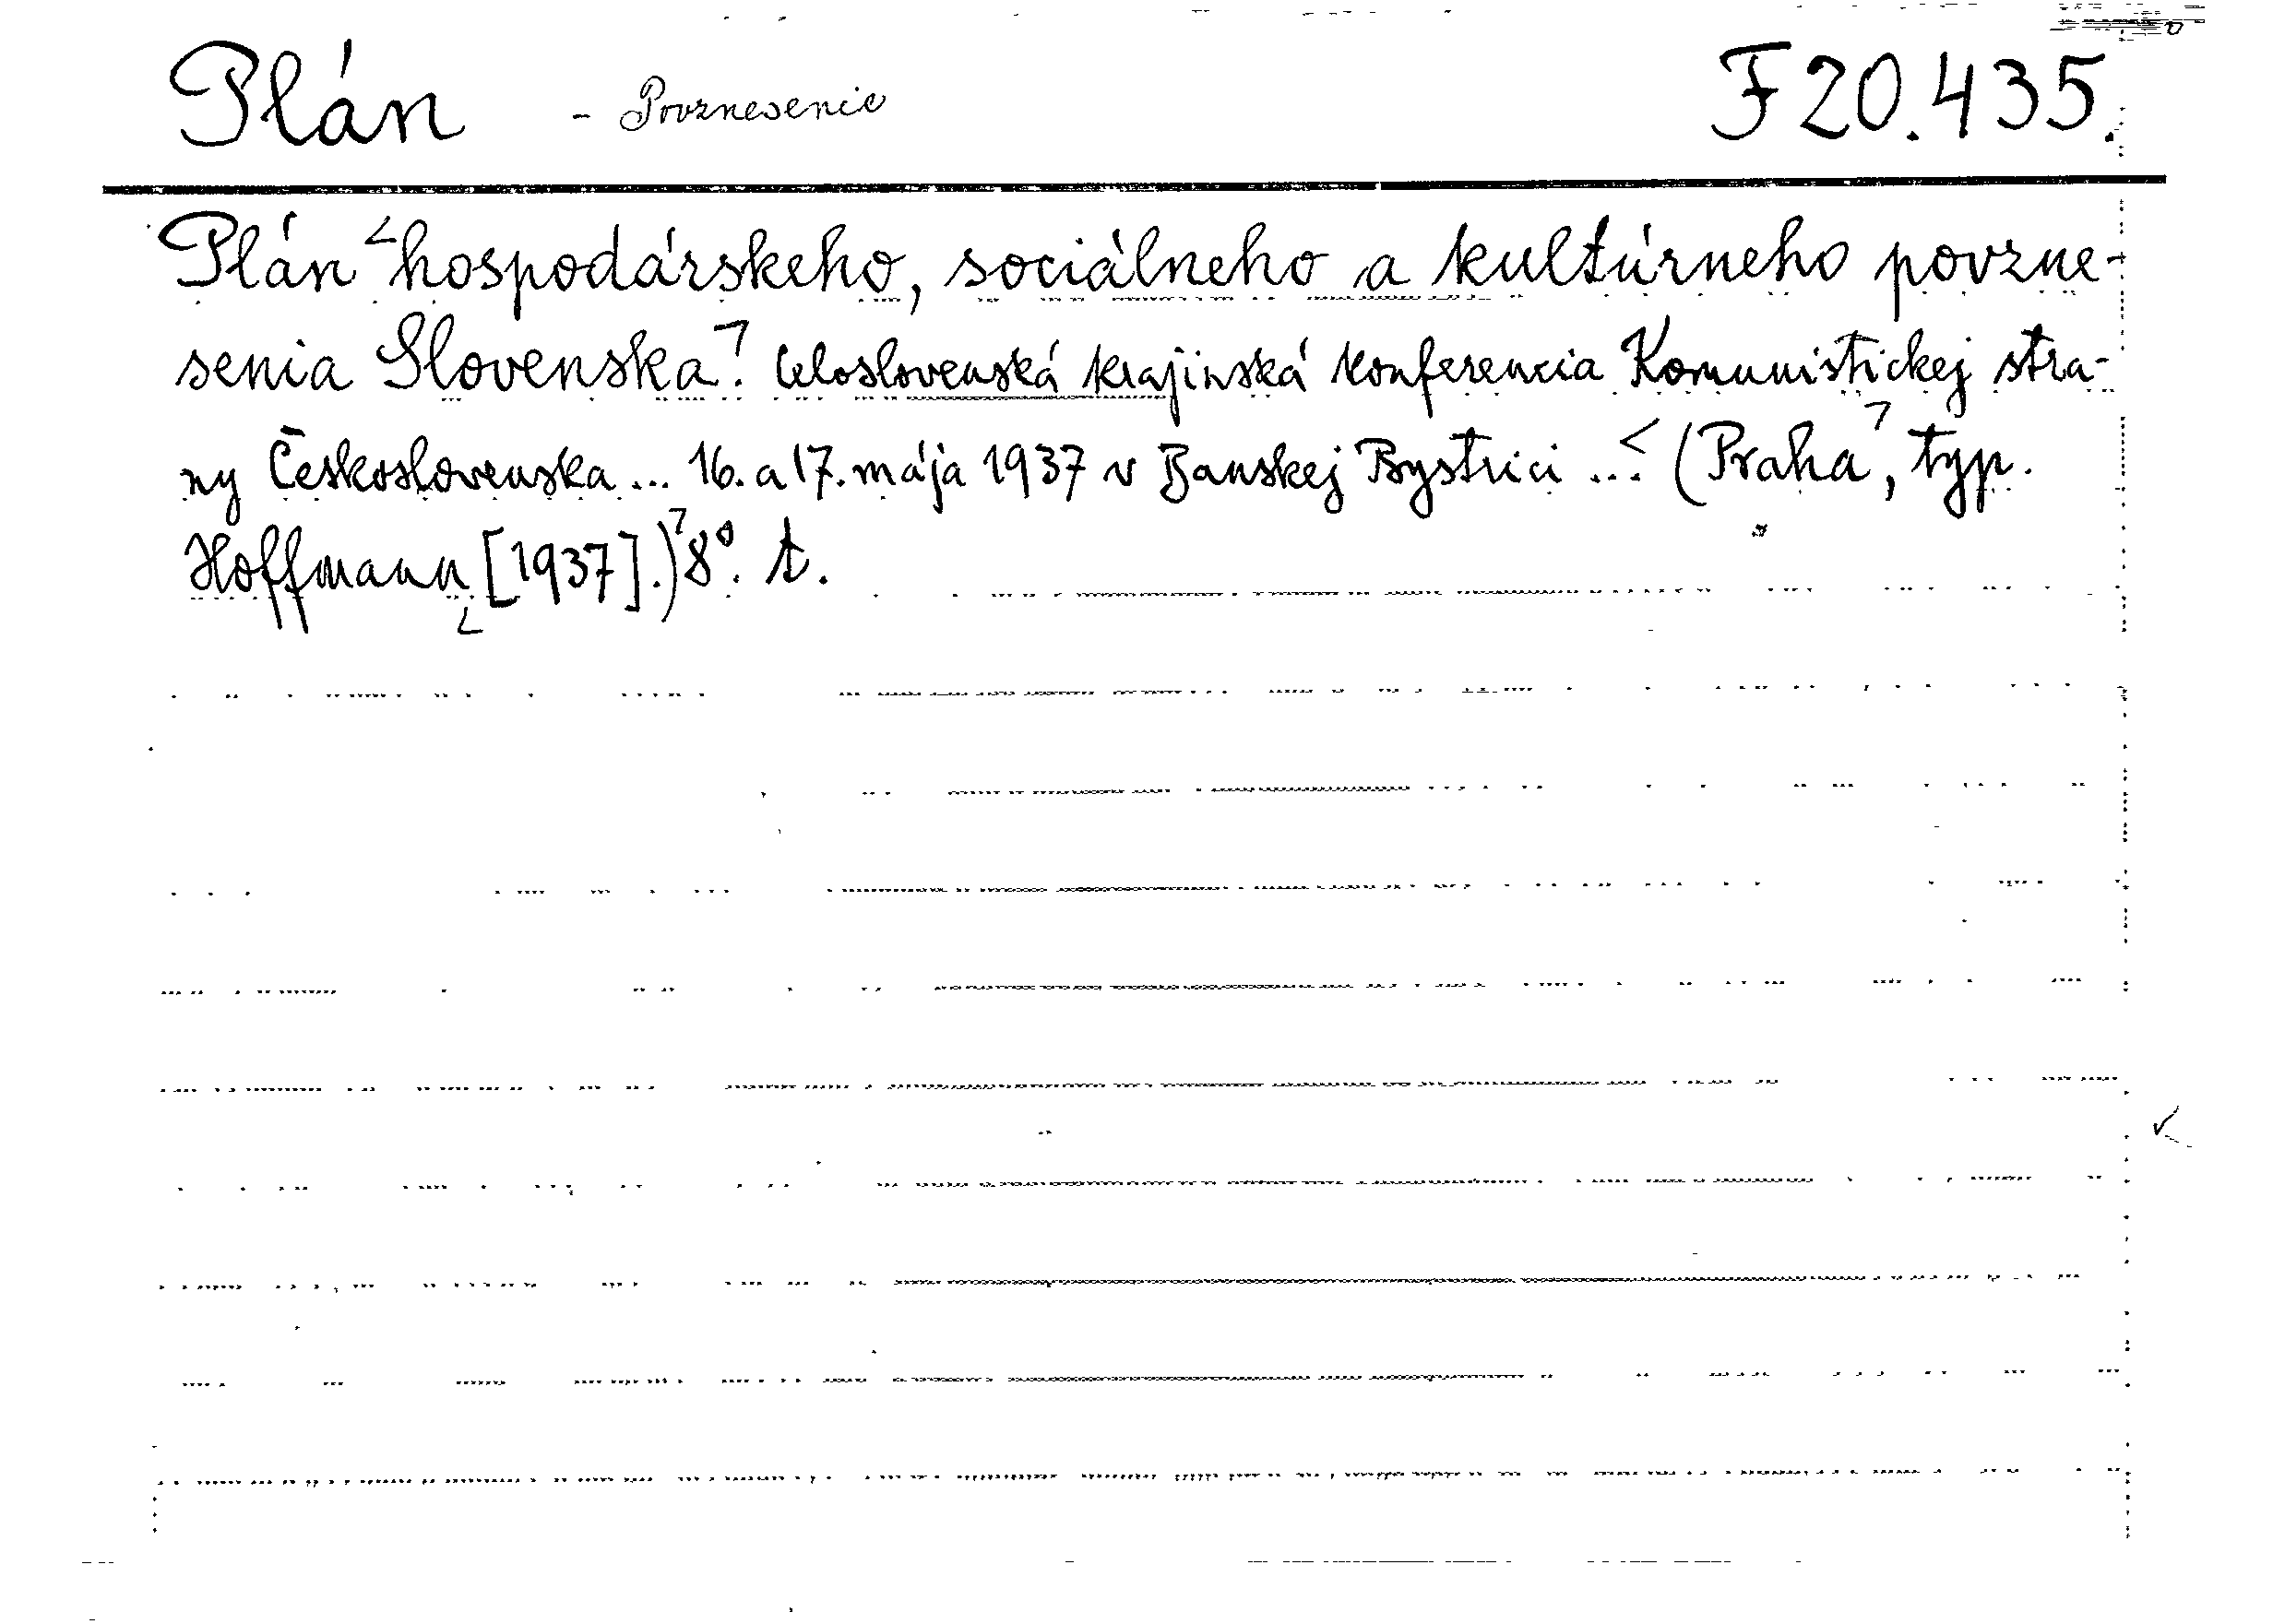 Plán - Povznesenie F 20.435.
Plán hospodárskeho, sociálneho a kultúrneho povzne-
senia Slovenska. Celoslovenská krajinská konferencia Komunistickej stra-
ny Československa ... 16. a 17. mája 1937 v Banskej Bystrici ... (Praha, typ.
Hoffmann [1937].) 8°. t.